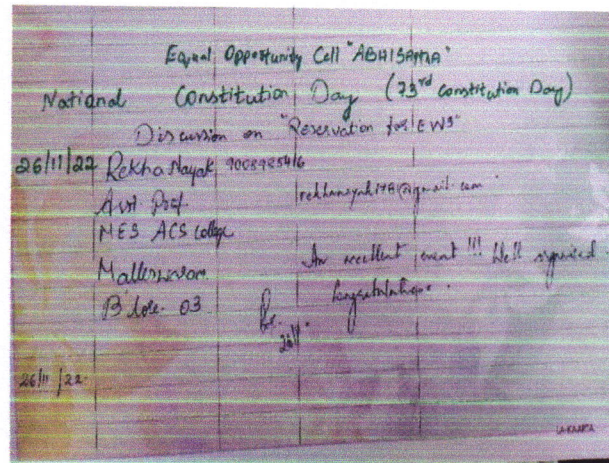 Equal Opportunity Cell "ABHISAMA"
National Constitution Day (73rd constitution Day)
Discussion on "Reservation for EWS"
26/11/22 Rekha Nayak
Asst Prof.
MES ACS College
Malleswaram
B'lore. 03
An excellent event !!! Well organised.
Congratulations.
26/11
26/11/22